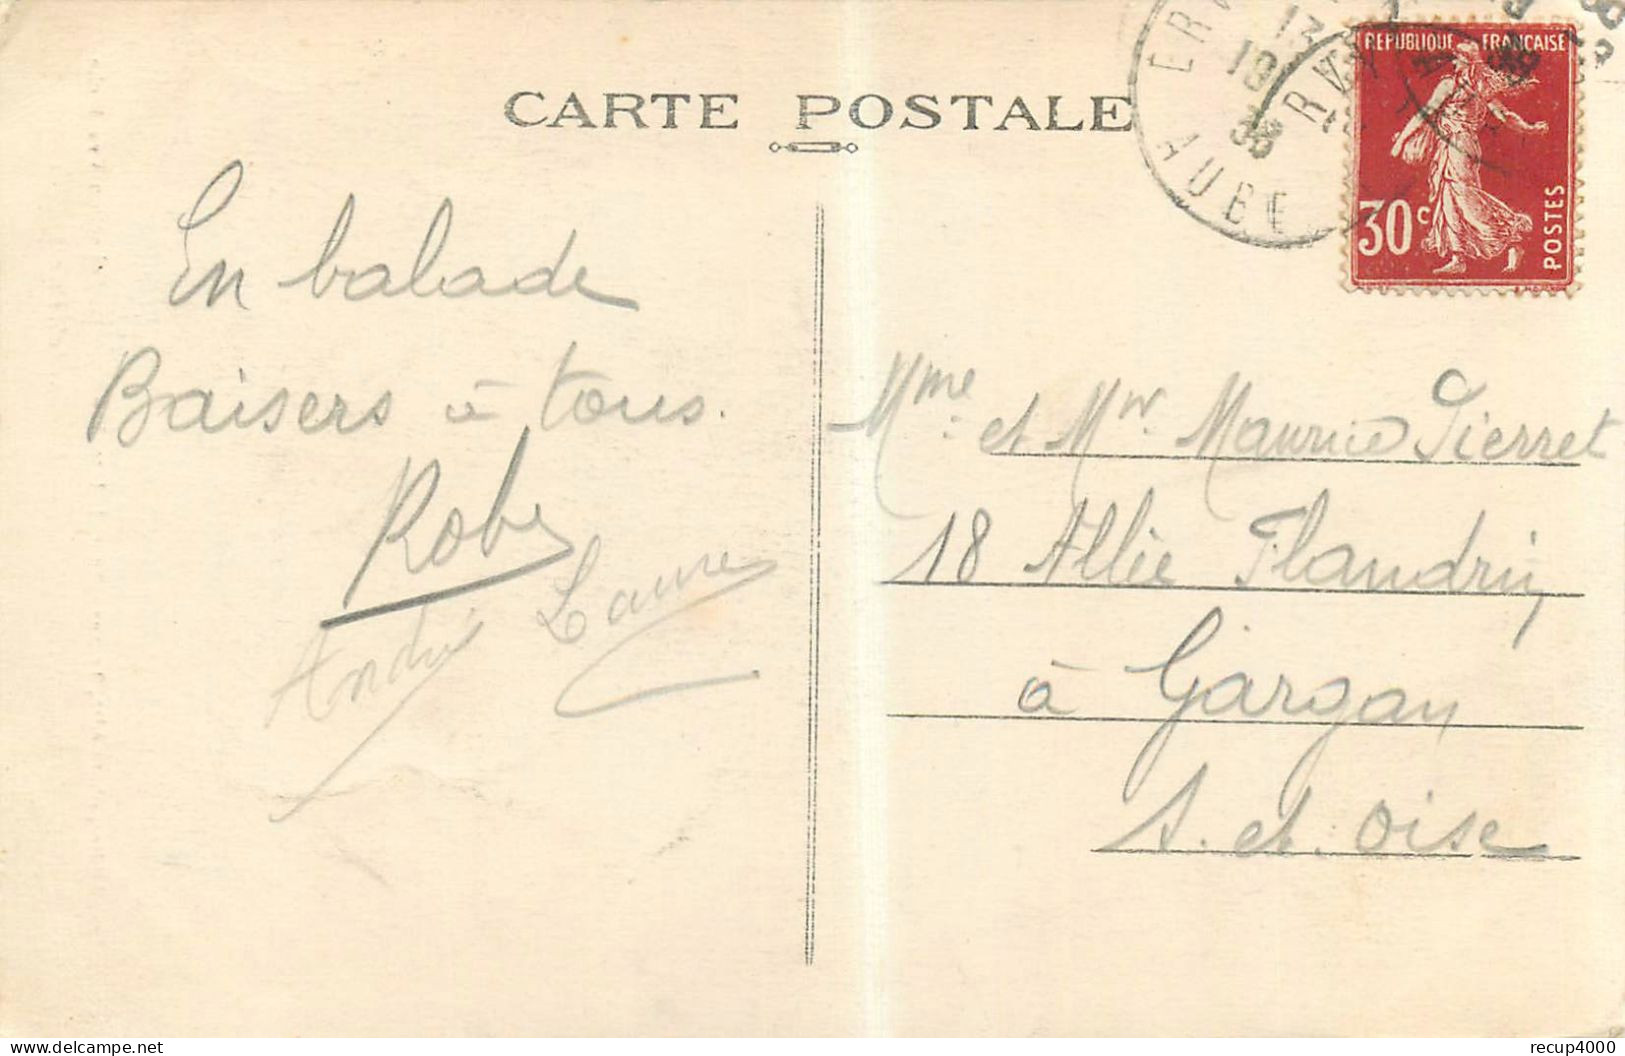 CARTE POSTALE
ERV
13
19
38
AUBE
RVY
REPUBLIQUE FRANÇAISE
30c
POSTES
En balade
Baisers à tous.
Robe
André Laure
Mme et Mr Maurice Pierret
18 Allée Flandrin
à Gargan
S. et. Oise
recup4000